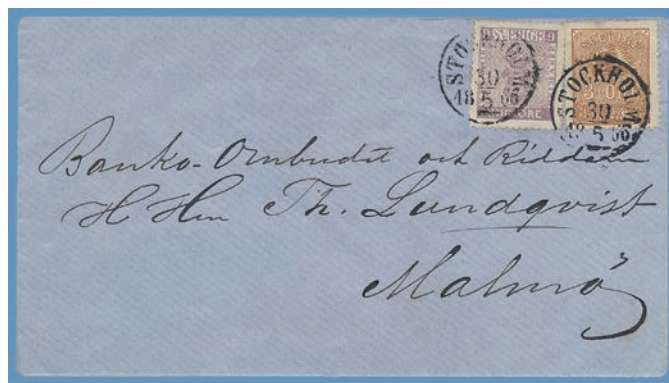 SVERIGE
9 ÖRE
STOCKHOLM
30
5
1866
STOCKHOLM
30
5
1866
Banko-Ombudet och Riddaren
H Hrn Th. Lundqvist
Malmö